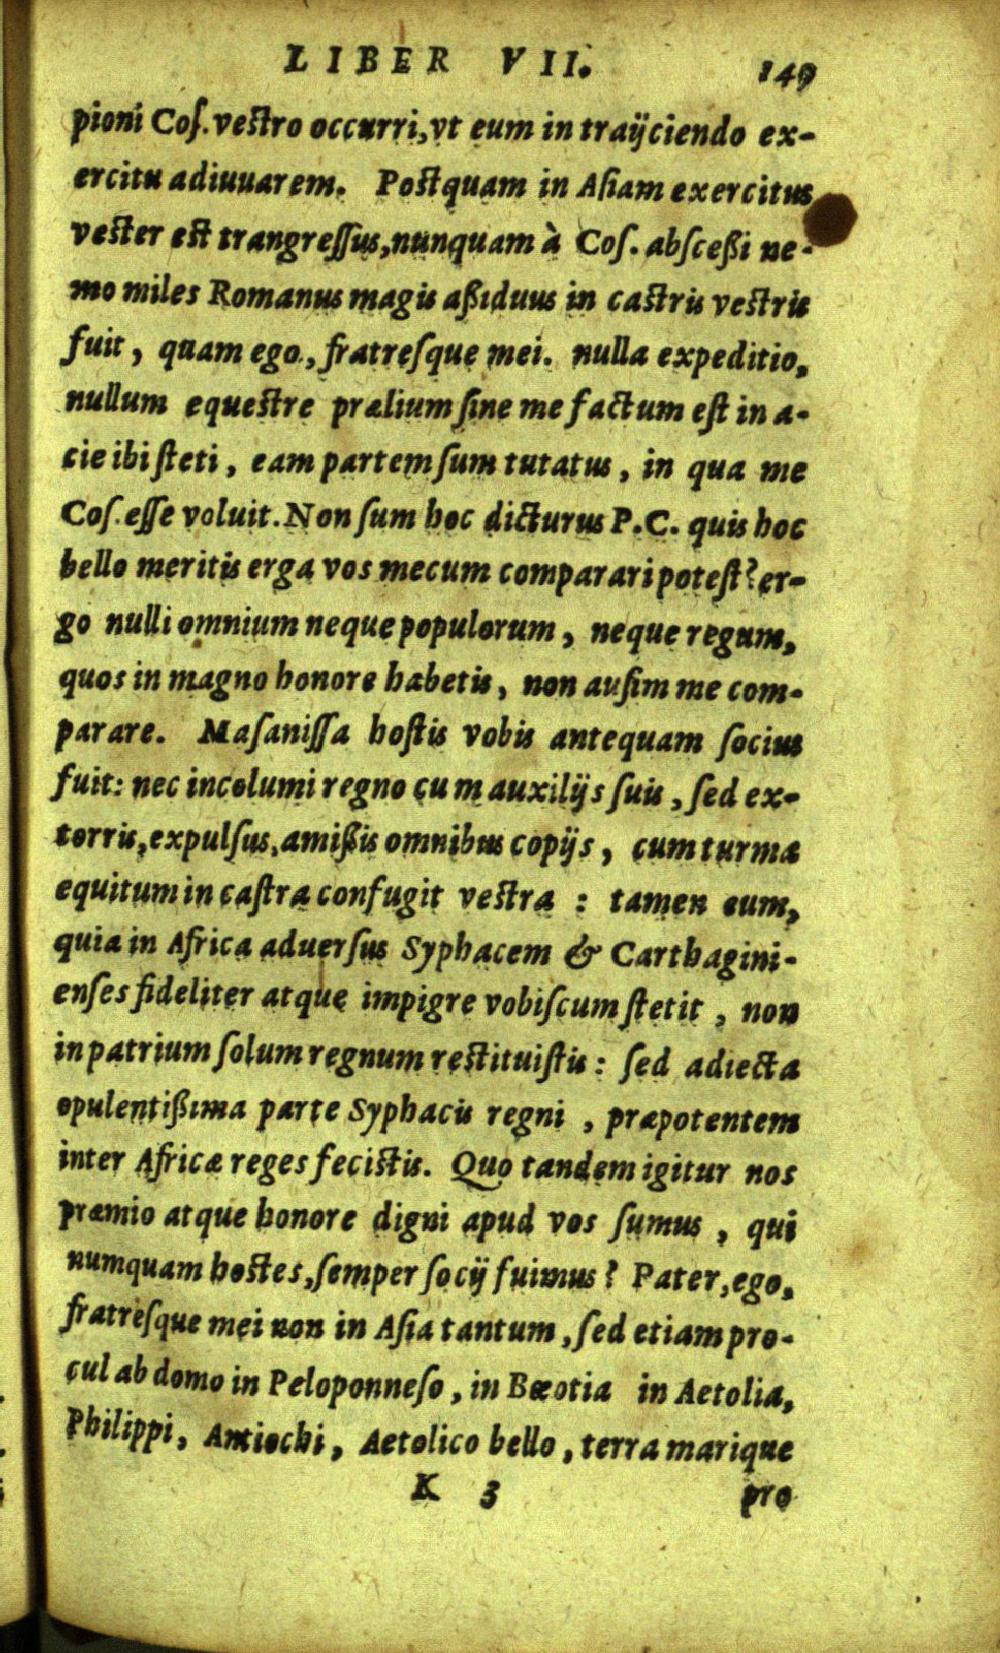 LIBER VII. 149
pioni Coſ. veſtro occurri, vt eum in traÿciendo ex-
ercitu adiuuarem. Poſtquam in Aſiam exercitus
veſter eſt trangreſſus, nunquam à Coſ. abſceßi ne-
mo miles Romanus magis aßiduus in caſtris veſtris
fuit, quam ego, fratreſque mei. nulla expeditio,
nullum equeſtre prælium ſine me factum eſt in a-
cie ibi ſteti, eam partem ſum tutatus, in qua me
Coſ. eſſe voluit. Non ſum hoc dicturus P.C. quis hoc
bello meritis erga vos mecum comparari poteſt? er-
go nulli omnium neque populorum, neque regum,
quos in magno honore habetis, non auſim me com-
parare. Maſaniſſa hoſtis vobis antequam ſocius
fuit: nec incolumi regno cum auxilijs ſuis, ſed ex-
torris, expulſus, amißis omnibus copijs, cum turma
equitum in caſtra confugit veſtra : tamen eum,
quia in Africa aduerſus Syphacem & Carthagini-
enſes fideliter atque impigre vobiſcum ſtetit, non
in patrium ſolum regnum reſtituiſtis: ſed adiecta
opulentißima parte Syphacis regni, præpotentem
inter Africæ reges feciſtis. Quo tandem igitur nos
præmio atque honore digni apud vos ſumus, qui
numquam hoſtes, ſemper ſocij fuimus? Pater, ego,
fratreſque mei non in Aſia tantum, ſed etiam pro-
cul ab domo in Peloponneſo, in Bœotia in Aetolia,
Philippi, Antiochi, Aetolico bello, terra marique
K 3 pro